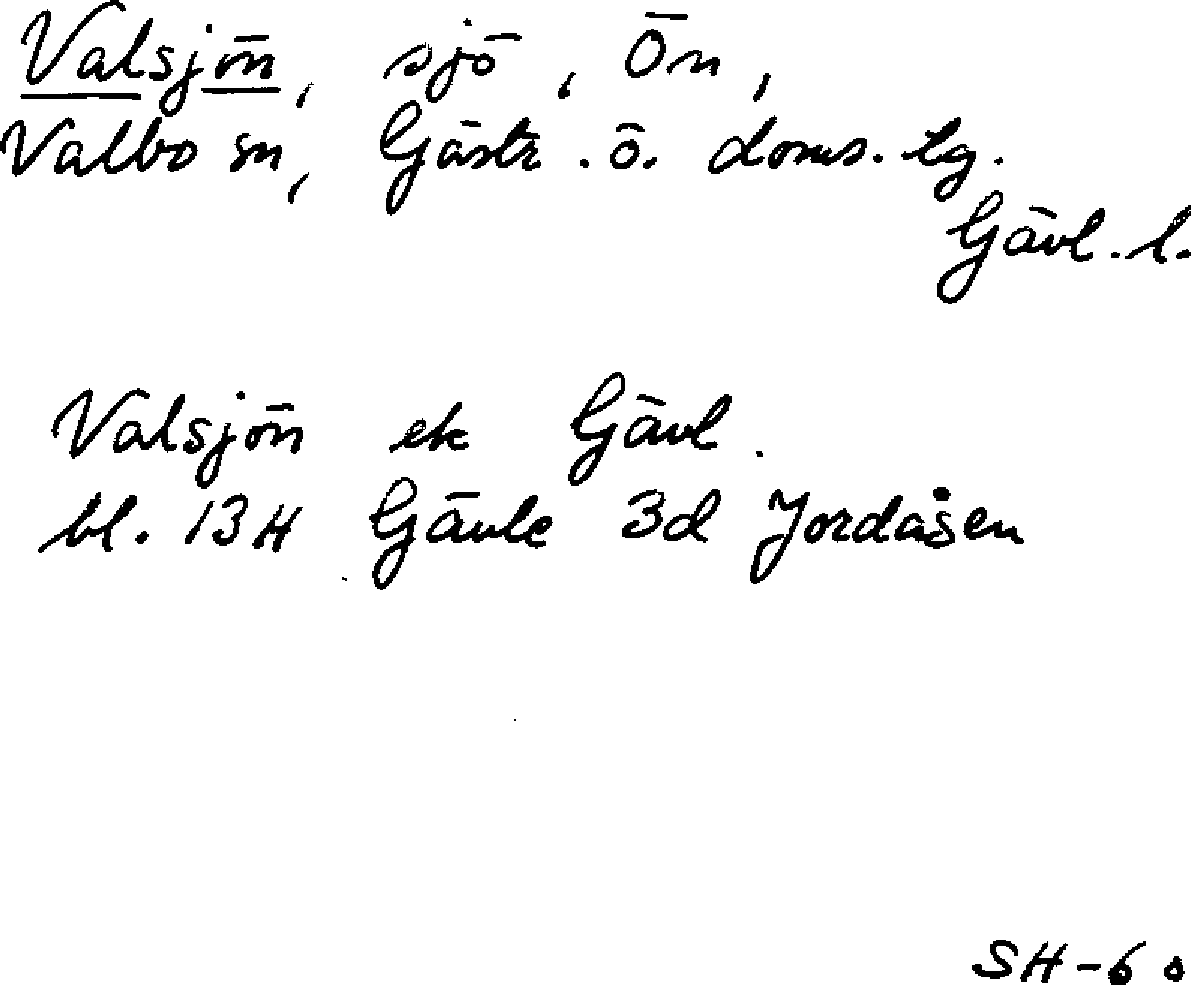 Valsjön, sjö, Ön,
Valbo sn, Gästr. ö. doms. lg.
Gävl. l.
Valsjön ek Gävl.
bl. 13H Gävle 3d Jordåsen
SH-60